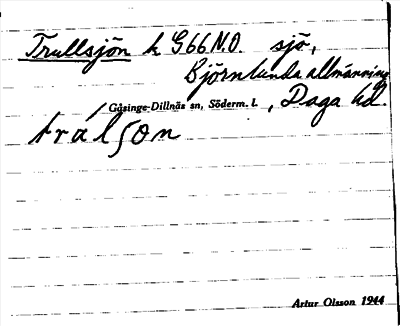 Trullsjön k G66N.O. sjö,
Björnlunda allmänning
Gåsinge-Dillnäs sn, Söderm. l., Daga hd.
trálʃon
Artur Olsson 1944